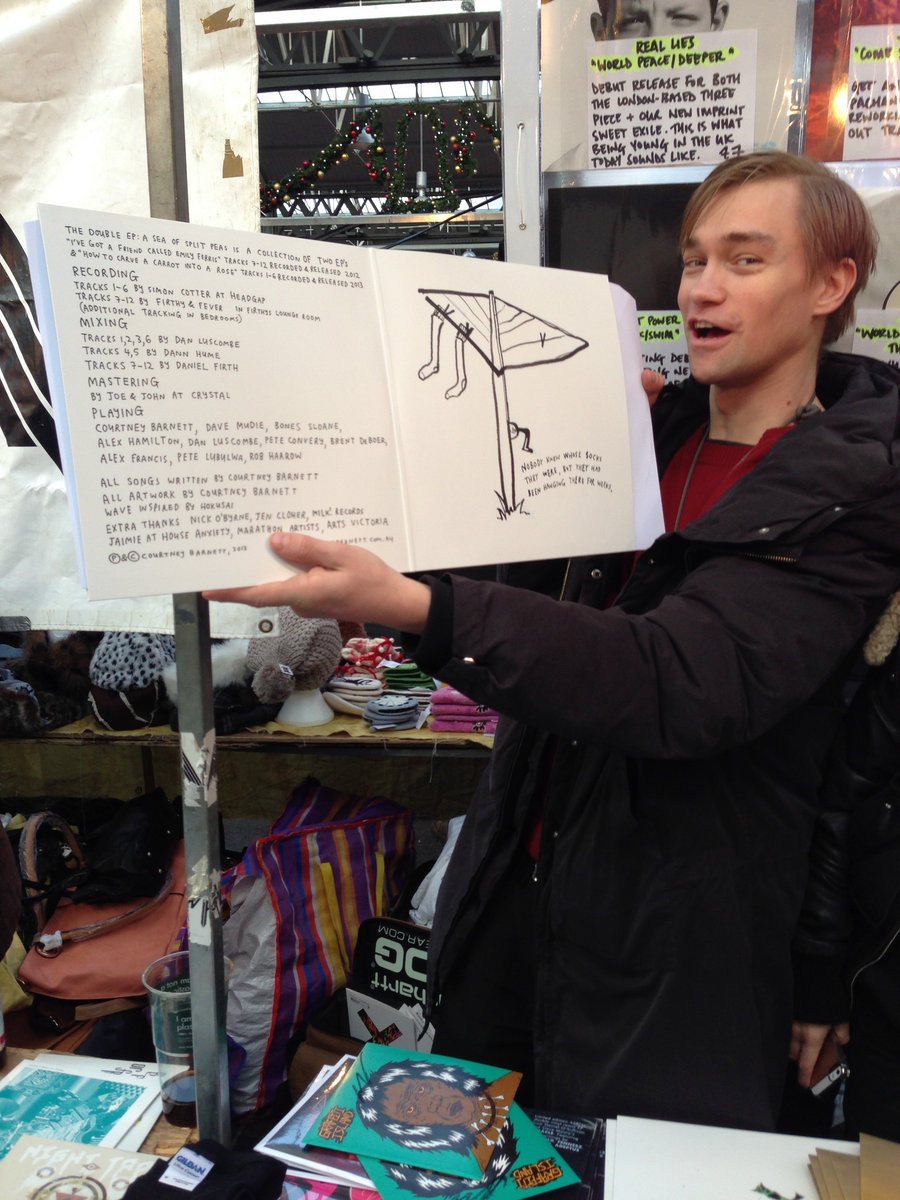 REAL LIES
"WORLD PEACE/DEEPER"
DEBUT RELEASE FOR BOTH
THE LONDON-BASED THREE
PIECE + OUR NEW IMPRINT
SWEET EXILE. THIS IS WHAT
BEING YOUNG IN THE UK
TODAY SOUNDS LIKE. £7
"COME
OUT
THE DOUBLE EP: A SEA OF SPLIT PEAS IS A COLLECTION OF TWO EP'S
"I'VE GOT A FRIEND CALLED EMILY FERRIS" TRACKS 7-12 RECORDED & RELEASED 2012
& "HOW TO CARVE A CARROT INTO A ROSE" TRACKS 1-6 RECORDED & RELEASED 2013
RECORDING
TRACKS 1-6 BY SIMON COTTER AT HEADGAP
TRACKS 7-12 BY FIRTHY & FEVER IN FIRTHYS LOUNGE ROOM
(ADDITIONAL TRACKING IN BEDROOMS)
MIXING
TRACKS 1,2,3,6 BY DAN LUSCOMBE
TRACKS 4,5 BY DANN HUME
TRACKS 7-12 BY DANIEL FIRTH
MASTERING
BY JOE & JOHN AT CRYSTAL
PLAYING
COURTNEY BARNETT, DAVE MUDIE, BONES SLOANE,
ALEX HAMILTON, DAN LUSCOMBE, PETE CONVERY, BRENT DEBOER,
ALEX FRANCIS, PETE LUBULWA, ROB HARROW
ALL SONGS WRITTEN BY COURTNEY BARNETT
ALL ARTWORK BY COURTNEY BARNETT
WAVE INSPIRED BY HOKUSAI
EXTRA THANKS NICK O'BYRNE, JEN CLOHER, MILK! RECORDS
JAIMIE AT HOUSE ANXIETY, MARATHON ARTISTS, ARTS VICTORIA
Ⓟ&© COURTNEY BARNETT, 2013
NOBODY KNEW WHOSE SOCKS
THEY WERE, BUT THEY HAD
BEEN HANGING THERE FOR WEEKS.
POWER
"WORLD
GILDAN